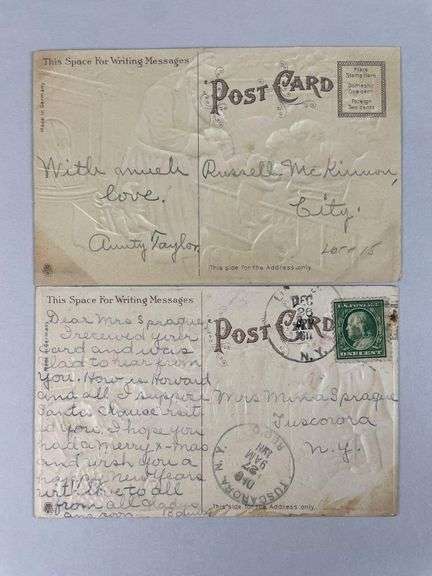 This Space For Writing Messages
POST CARD
Place
Stamp Here
Domestic
One cent
Foreign
Two cents
Made in Germany
With much
love.
Aunty Taylor
Russell McKinnon,
City.
Lot 15
This side for the Address only.
This Space For Writing Messages
POST CARD
Dear Mrs Sprague
I received your
card and was
glad to hear from
you. How is Howard
and all I suppose
Santa Clause visit
to you. I hope you
had a merry x-mas
and wish you a
happy new years
with love to all
from all
DEC
26
N.Y.
U.S. POSTAGE
ONE CENT
Mrs Mina Sprague
Tuscorora
N.Y.
TUSCARORA N.Y.
REC'D.
DEC
27
9AM
This side for the Address only.